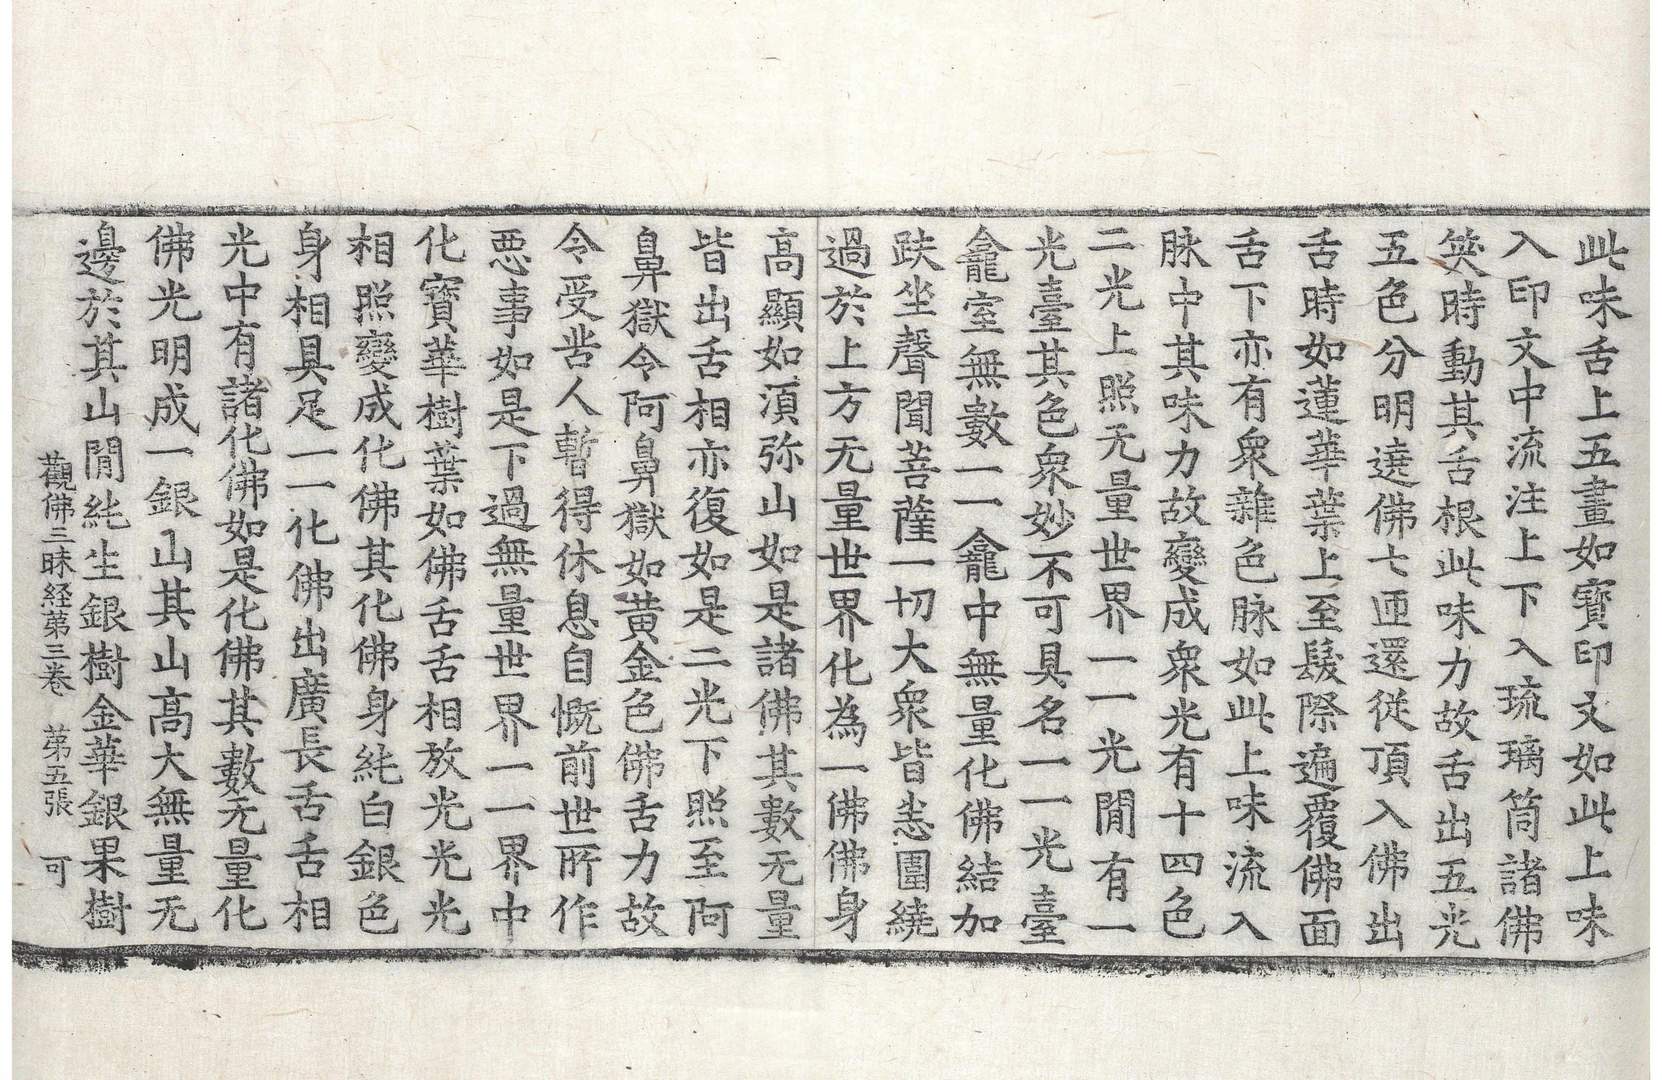 此味舌上五畫如寶印文如此上味
入印文中流注上下入琉璃筒諸佛
笑時動其舌根此味力故舌出五光
五色分明遶佛七迊還從頂入佛出
舌時如蓮華葉上至髮際遍覆佛面
舌下亦有衆雜色脉如此上味流入
脉中其味力故變成衆光有十四色
二光上照无量世界一一光閒有一
光臺其色衆妙不可具名一一光臺
龕室無數一一龕中無量化佛結加
趺坐聲聞菩薩一切大衆皆恚圍繞
過於上方无量世界化為一佛佛身
高顯如湏弥山如是諸佛其數无量
皆出舌相亦復如是二光下照至阿
鼻獄令阿鼻獄如黃金色佛舌力故
令受苦人暫得休息自慨前世所作
惡事如是下過無量世界一一界中
化寶華樹葉如佛舌舌相放光光光
相照變成化佛其化佛身純白銀色
身相具足一一化佛出廣長舌舌相
光中有諸化佛如是化佛其數无量化
佛光明成一銀山其山高大無量无
邊於其山閒純生銀樹金華銀果樹
觀佛三昧経第三卷 第五張 可